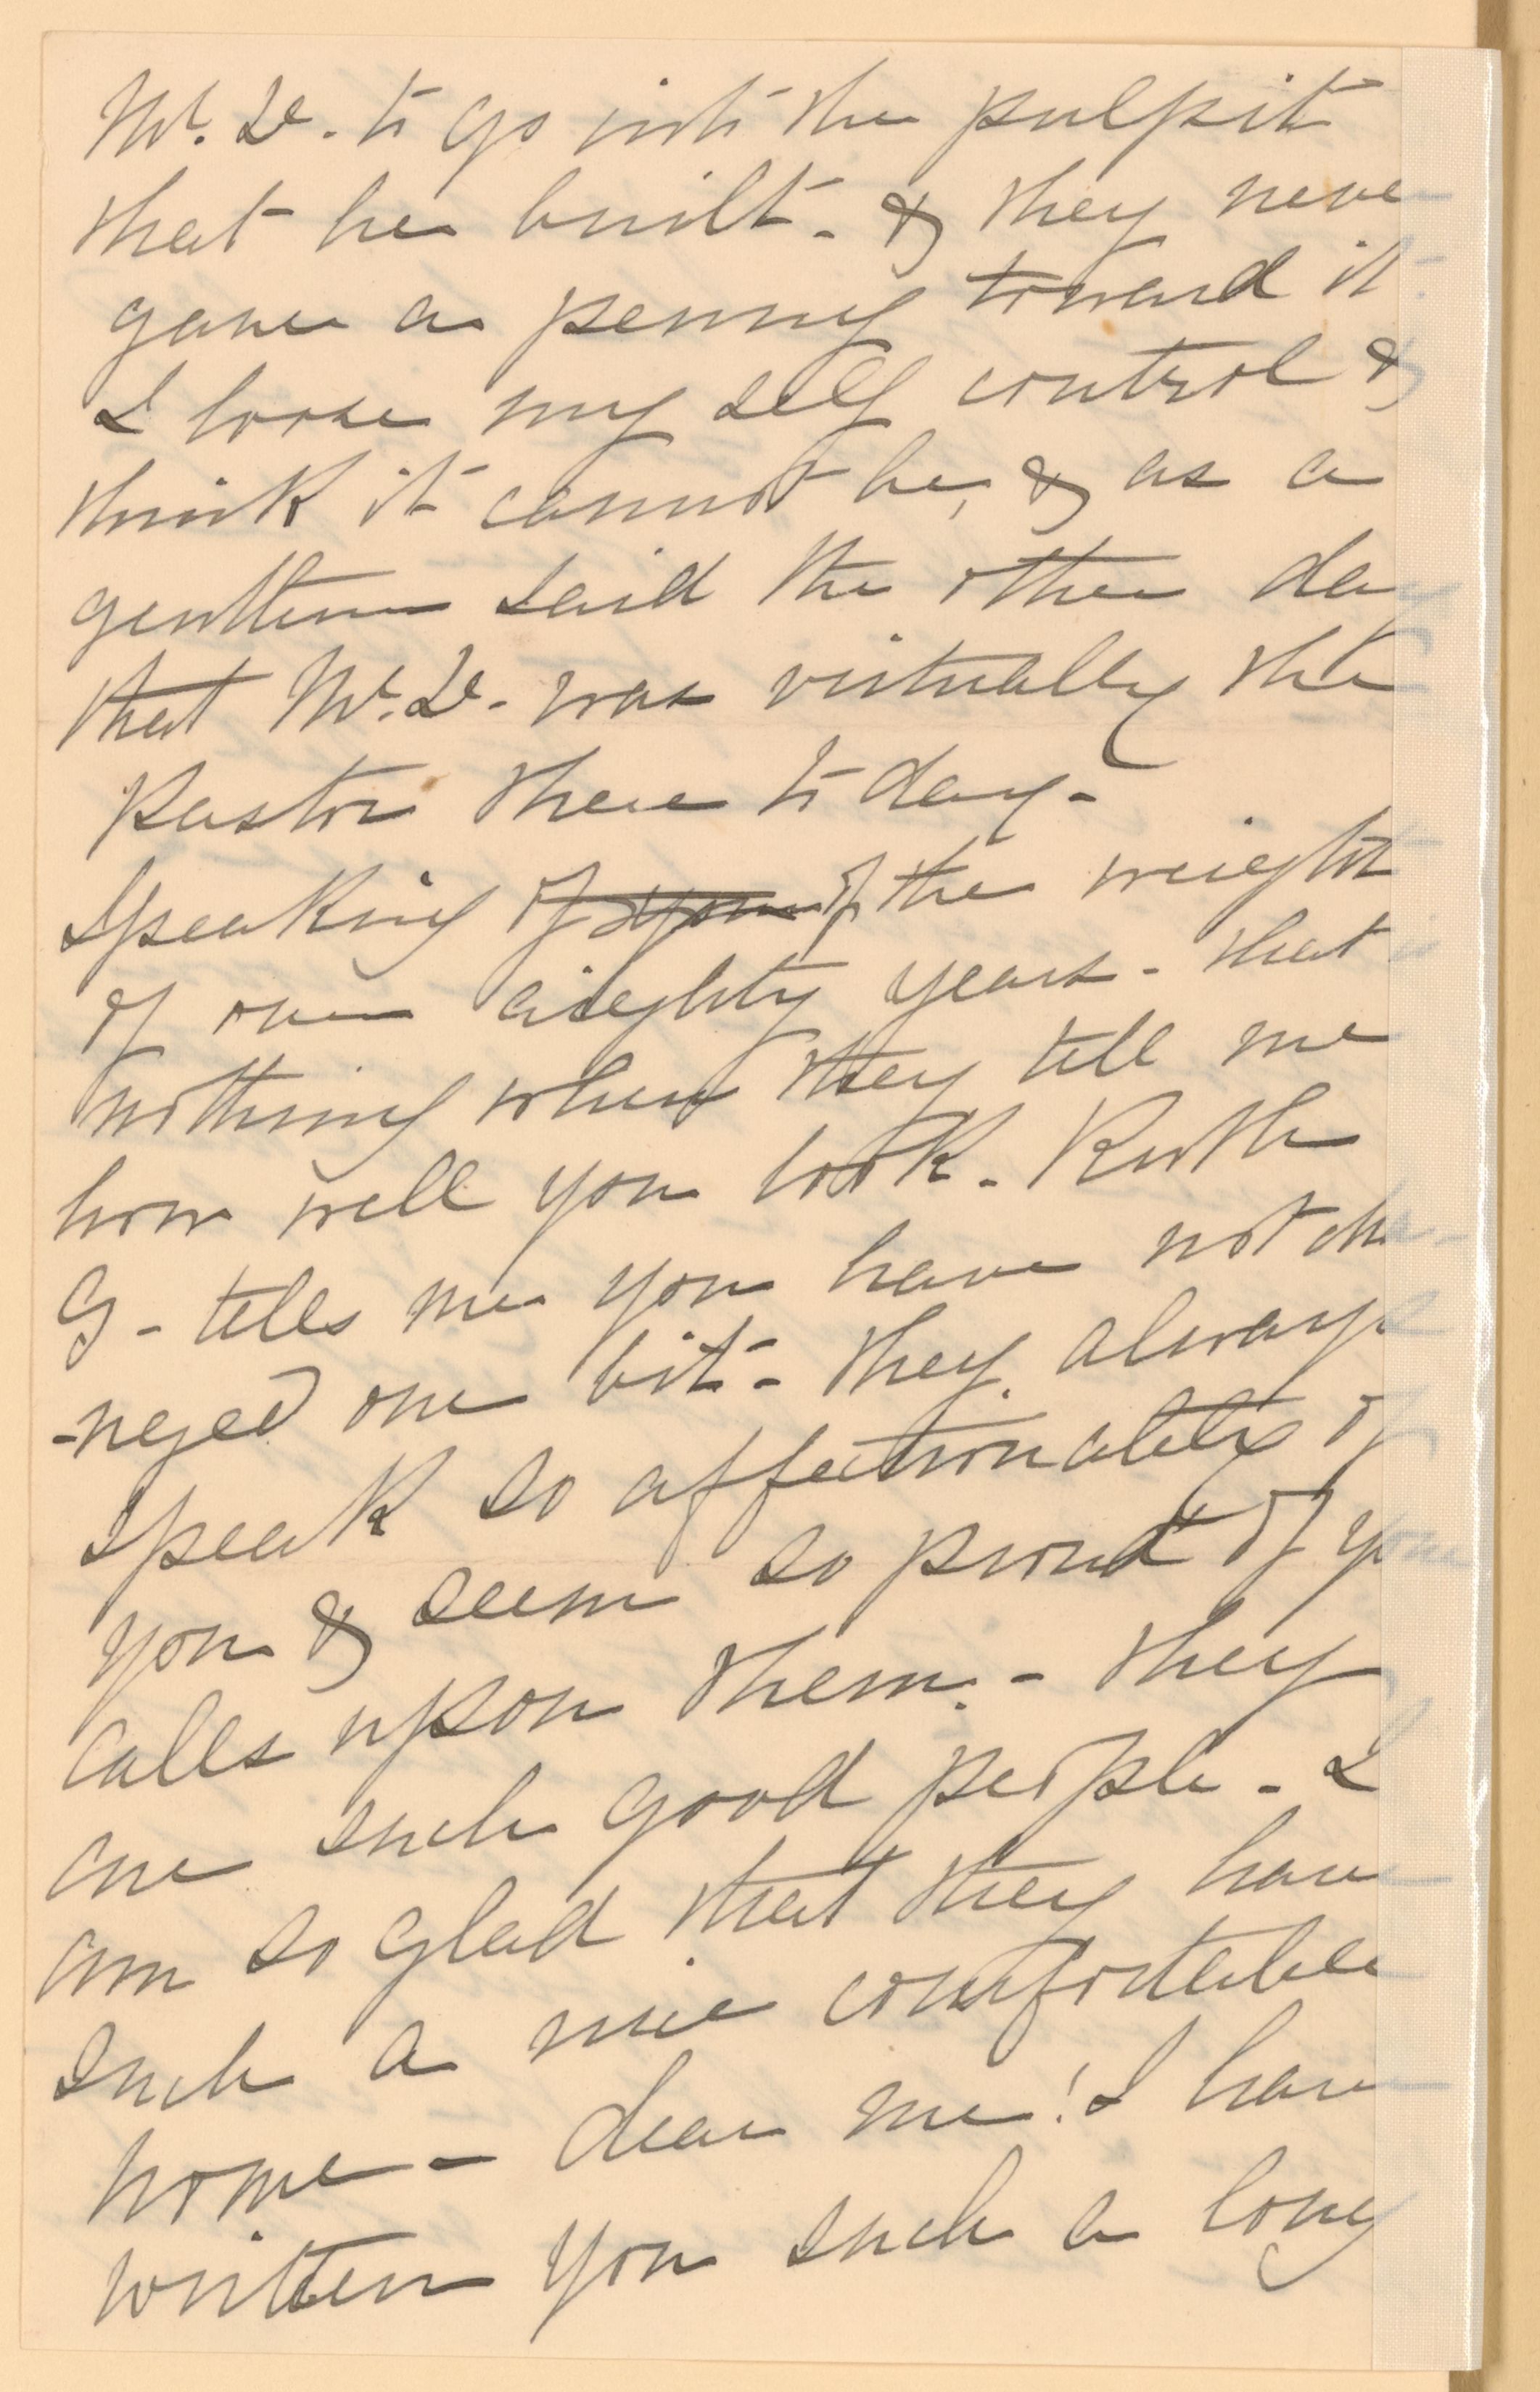 Mr. D. to go into the pulpit
that he built - & they never
gave a penny toward it
I loose my self control &
think it cannot be, & as a
gentleman said the other day
that Mr. D. was virtually the
Pastor there to day -
Speaking of your of the weight
of over eighty years - that
nothing when they tell me
how well you look - Ruth
G - tells me you have not cha-
-nged one bit - they always
speak so affectionately of
you & seem so proud of your
calls upon them. - they
are such good people - I
am so glad that they have
such a nice comfortable
home - dear me! I have
written you such a long